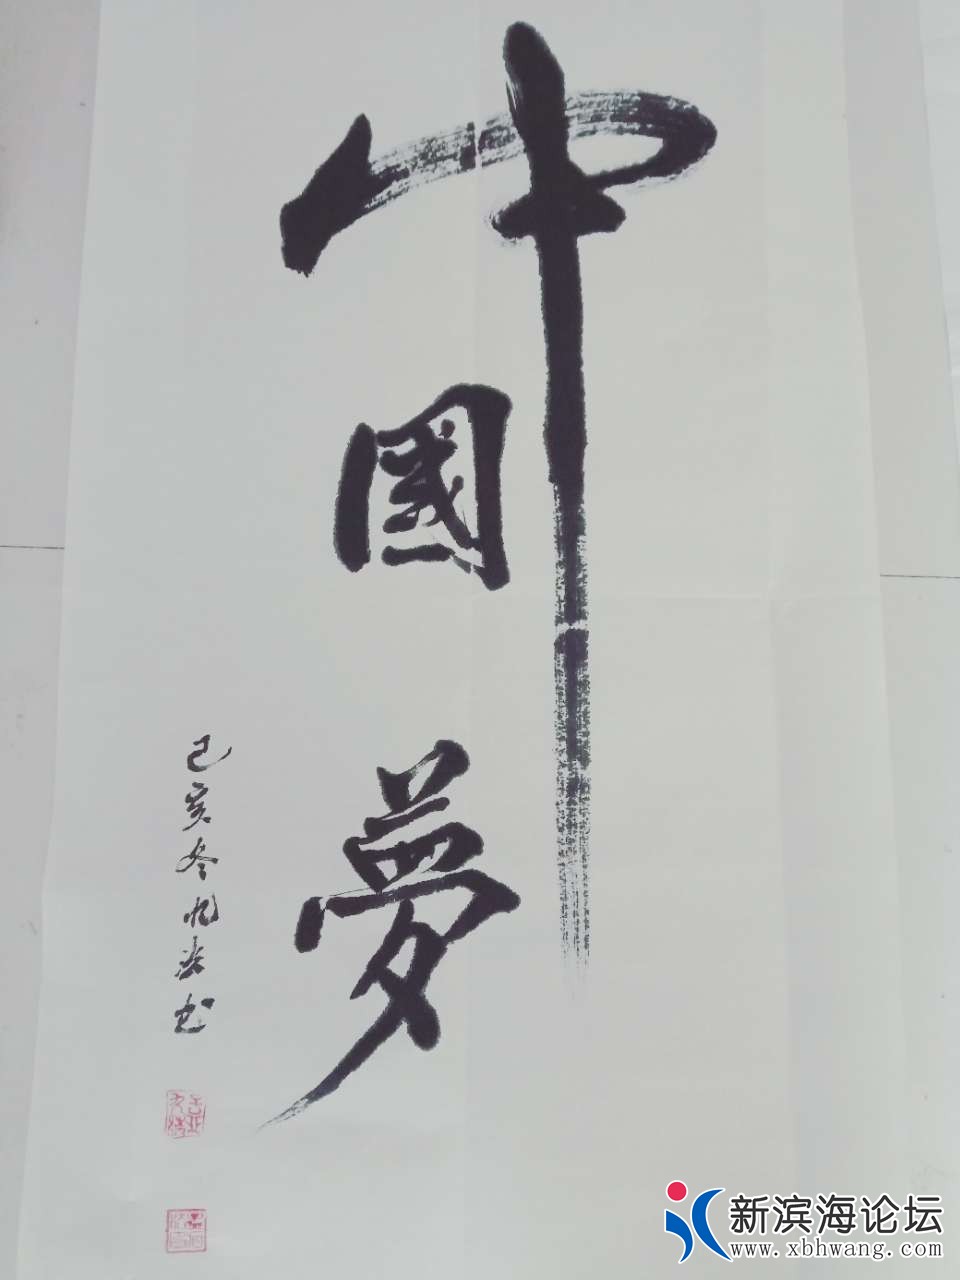 中國夢
己亥冬
书
新滨海论坛
www.xbhwang.com